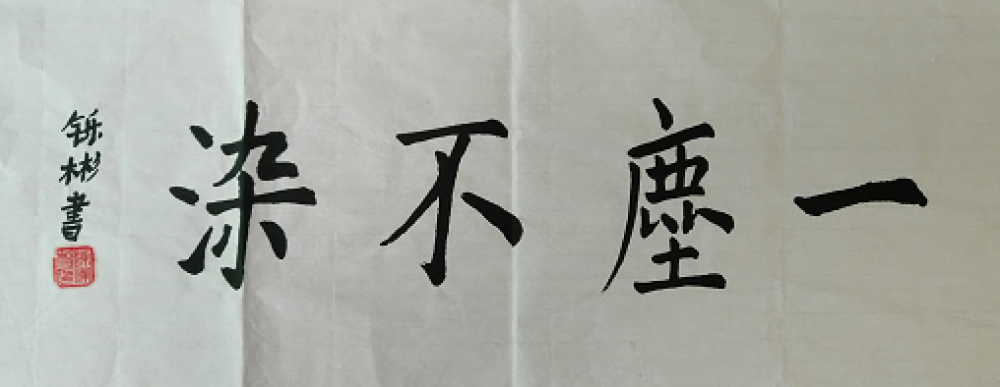 一塵不染
铄彬書